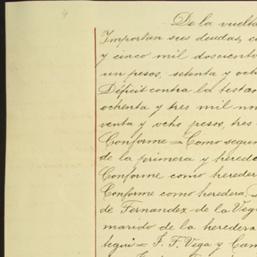 De la vuelta
Importan sus deudas, c
y cinco mil doscuento
un pesos, setenta y och
Déficit contra la testa
ochenta y tres mil no
venta y ocho pesos, tres
Conforme = Como segun
de la primera y hereder
Conforme como hereder
Conforme como heredera
de Fernandez de la Veg
marido de la heredera
tegui = J. F. Vega y Cam